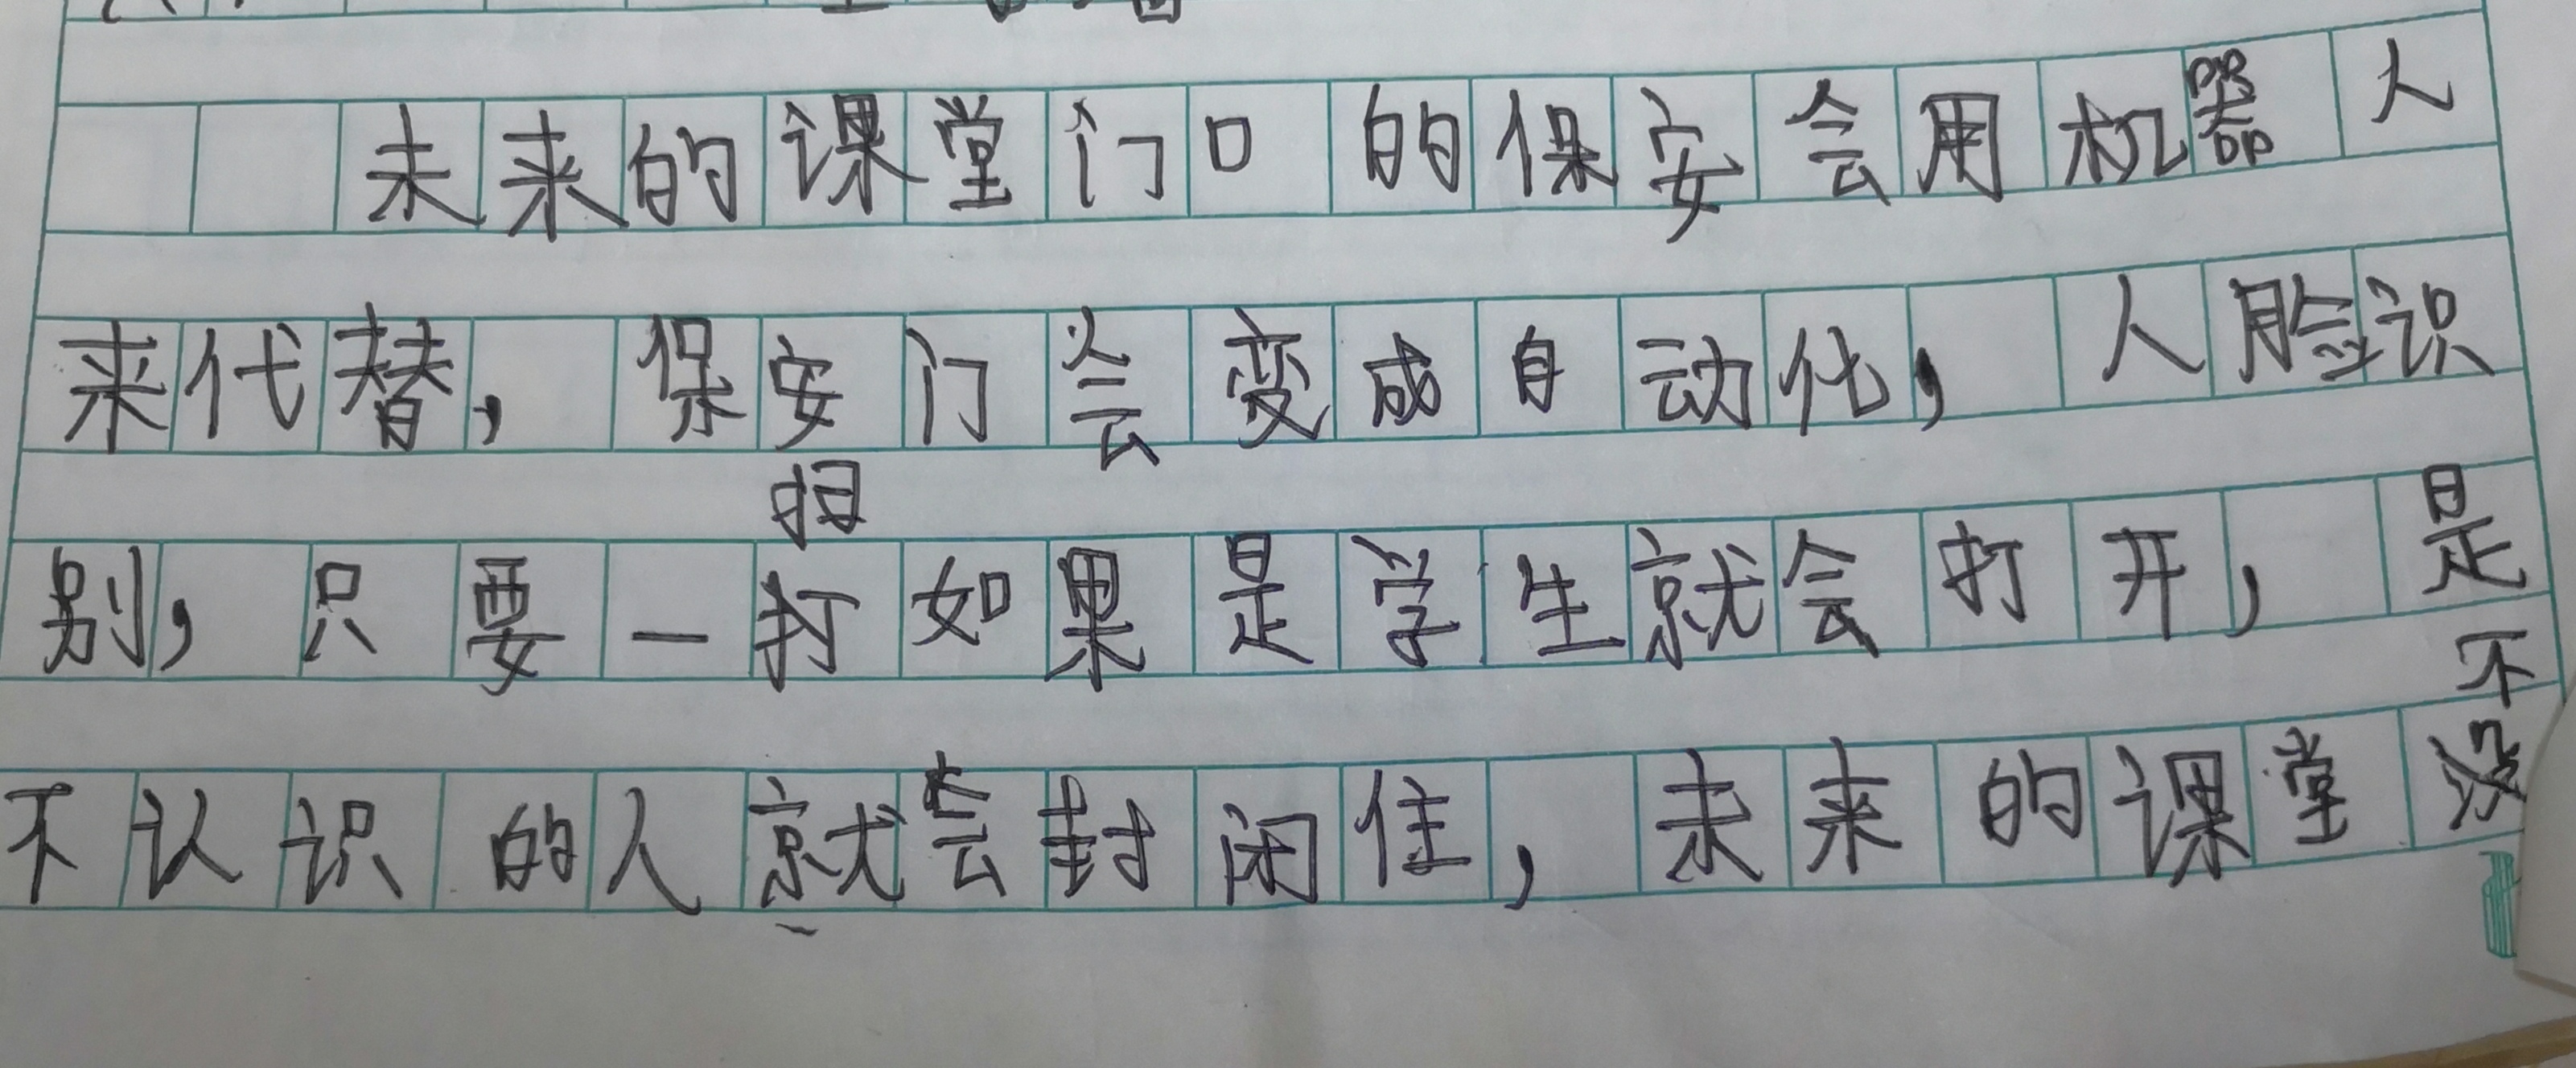 未来的课堂门口的保安会用机器人
来代替，保安门会变成自动化，人脸识
扫
别，只要一打如果是学生就会打开，是
不
不认识的人就会封闭住，未来的课堂没